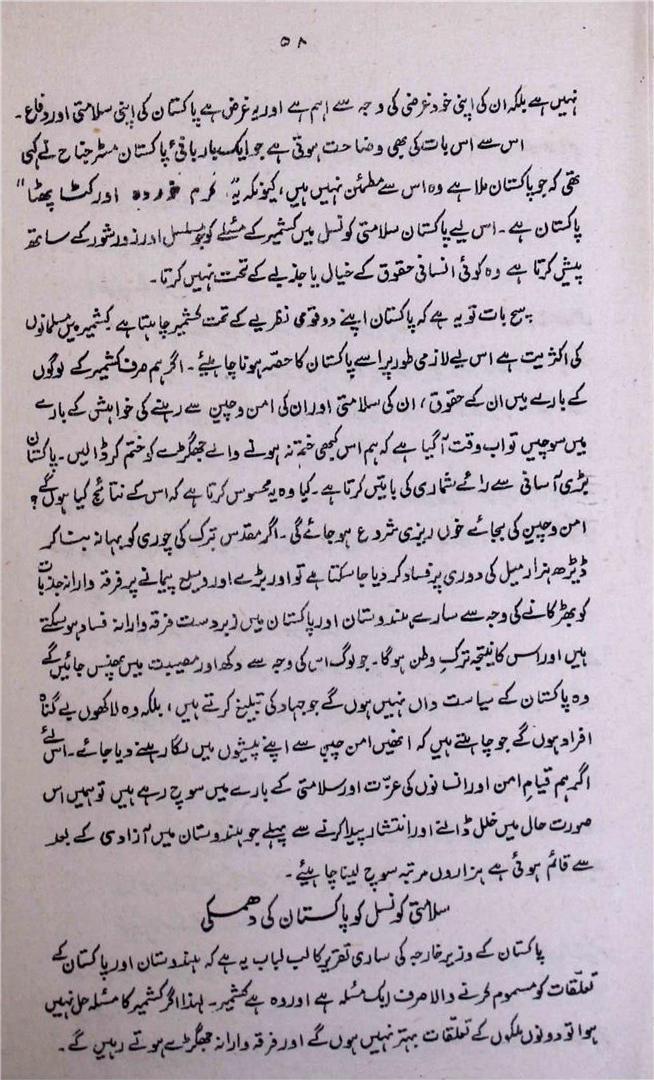 ۵۸
نہیں ہے بلکہ ان کی اپنی خود غرضی کی وجہ سے اہم ہے اور یہ غرض ہے پاکستان کی اپنی سلامتی اور دفاع۔
اس سے اس بات کی بھی وضاحت ہوتی ہے جو ایک بار بانیٔ پاکستان مسٹر جناح نے کہی
تھی کہ جو پاکستان ملا ہے وہ اس سے مطمئن نہیں ہیں، کیونکہ یہ "کرم خوردہ اور کٹا پھٹا"
پاکستان ہے۔ اس لیے پاکستان سلامتی کونسل میں کشمیر کے مسئلے کو جو تسلسل اور زور شور کے ساتھ
پیش کرتا ہے وہ کوئی انسانی حقوق کے خیال یا جذبے کے تحت نہیں کرتا۔
سچ بات تو یہ ہے کہ پاکستان اپنے دو قومی نظریے کے تحت کشمیر چاہتا ہے کشمیر میں مسلمانوں
کی اکثریت ہے اس لیے لازمی طور پر اسے پاکستان کا حصہ ہونا چاہیئے۔ اگر ہم صرف کشمیر کے لوگوں
کے بارے میں ان کے حقوق، ان کی سلامتی اور ان کی امن و چین سے رہنے کی خواہش کے بارے
میں سوچیں تو اب وقت آگیا ہے کہ ہم اس کبھی ختم نہ ہونے والے جھگڑے کو ختم کر ڈالیں۔ پاکستان
بڑی آسانی سے رائے شماری کی باتیں کرتا ہے۔ کیا وہ یہ محسوس کرتا ہے کہ اس کے نتائج کیا ہوں گے؟
امن و چین کی بجائے خوں ریزی شروع ہو جائے گی۔ اگر مقدس تبرک کی چوری کو بہانہ بنا کر
ڈیڑھ ہزار میل کی دوری پر فساد کر دیا جا سکتا ہے تو اور بڑے اور وسیع پیمانے پر فرقہ وارانہ جذبات
کو بھڑکانے کی وجہ سے سارے ہندوستان اور پاکستان میں زبردست فرقہ وارانہ فساد ہو سکتے
ہیں اور اس کا نتیجہ ترکِ وطن ہوگا۔ جو لوگ اس کی وجہ سے دکھ اور مصیبت میں پھنس جائیں گے
وہ پاکستان کے سیاست داں نہیں ہوں گے جو جہاد کی تبلیغ کرتے ہیں، بلکہ وہ لاکھوں بے گناہ
افراد ہوں گے جو چاہتے ہیں کہ انھیں امن چین سے اپنے پیشوں میں لگا رہنے دیا جائے۔ اس لئے
اگر ہم قیامِ امن اور انسانوں کی عزّت اور سلامتی کے بارے میں سوچ رہے ہیں تو ہمیں اس
صورت حال میں خلل ڈالنے اور انتشار پیدا کرنے سے پہلے جو ہندوستان میں آزادی کے بعد
سے قائم ہوئی ہے ہزاروں مرتبہ سوچ لینا چاہیئے۔
سلامتی کونسل کو پاکستان کی دھمکی
پاکستان کے وزیر خارجہ کی ساری تقریر کا لب لباب یہ ہے کہ ہندوستان اور پاکستان کے
تعلقات کو مسموم کرنے والا صرف ایک مسئلہ ہے اور وہ ہے کشمیر۔ لہذا اگر کشمیر کا مسئلہ حل نہیں
ہوا تو دونوں ملکوں کے تعلّقات بہتر نہیں ہوں گے اور فرقہ وارانہ جھگڑے ہوتے رہیں گے۔